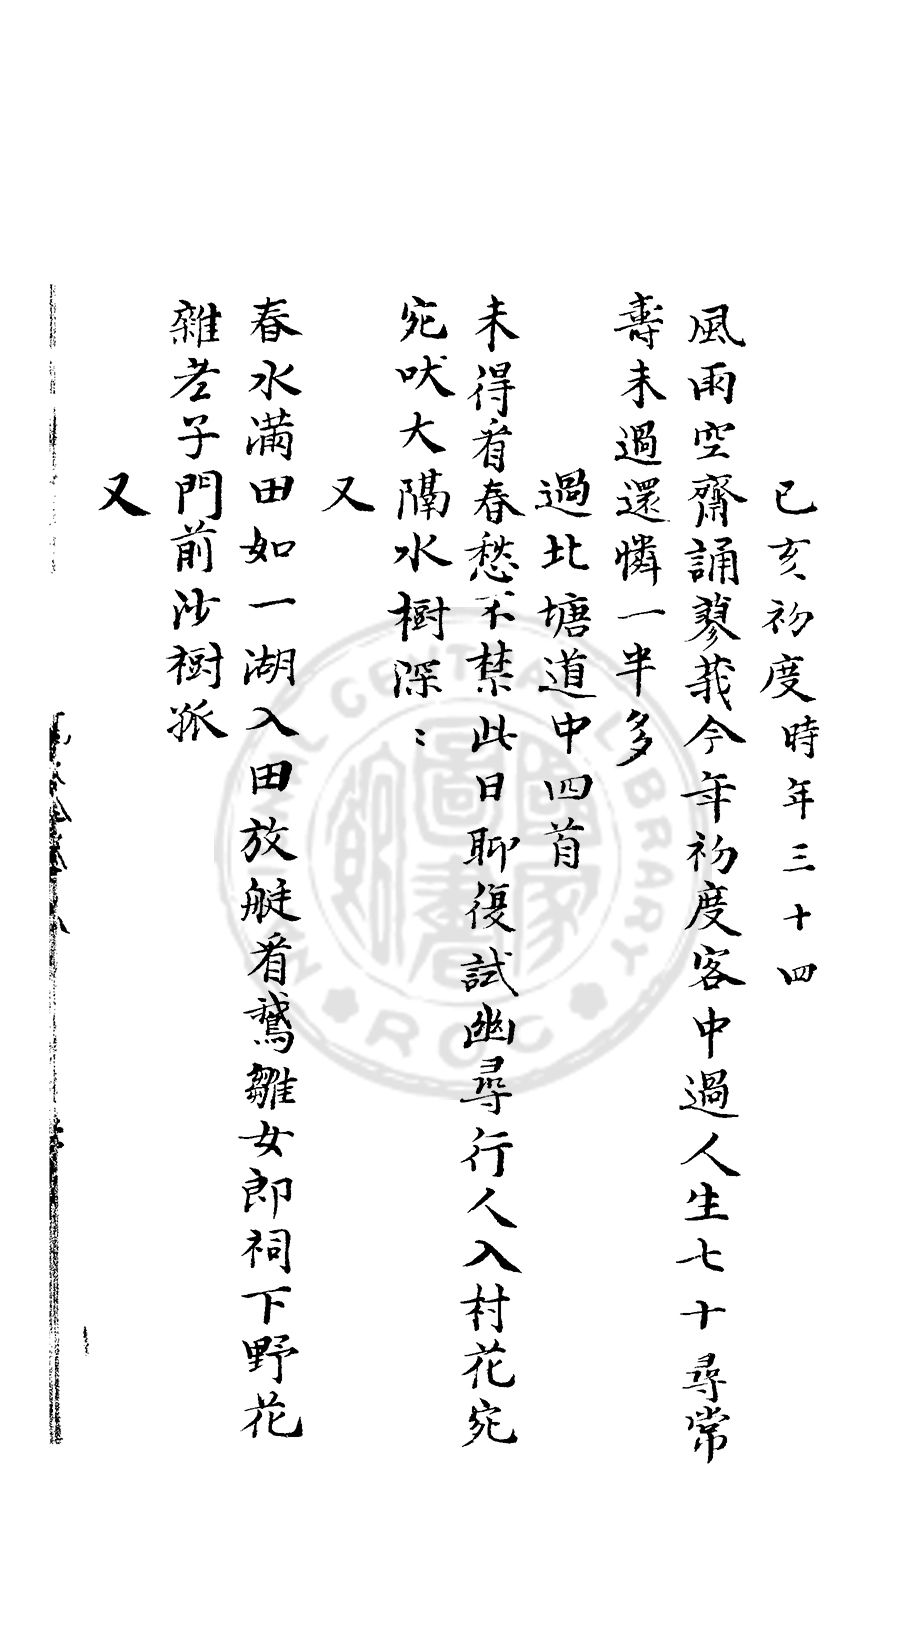 已亥初度時年三十四
風雨空齋誦蓼莪今年初度客中過人生七十尋常
壽未過還憐一半多
過北塘道中四首
未得看春愁不禁此日聊復試幽尋行人入村花宛
宛吠犬隔水樹深:
又
春水滿田如一湖入田放艇看鵞雛女郎祠下野花
雜老子門前沙樹孤
又
NATIONAL CENTRAL LIBRARY
ROC
國家圖書館